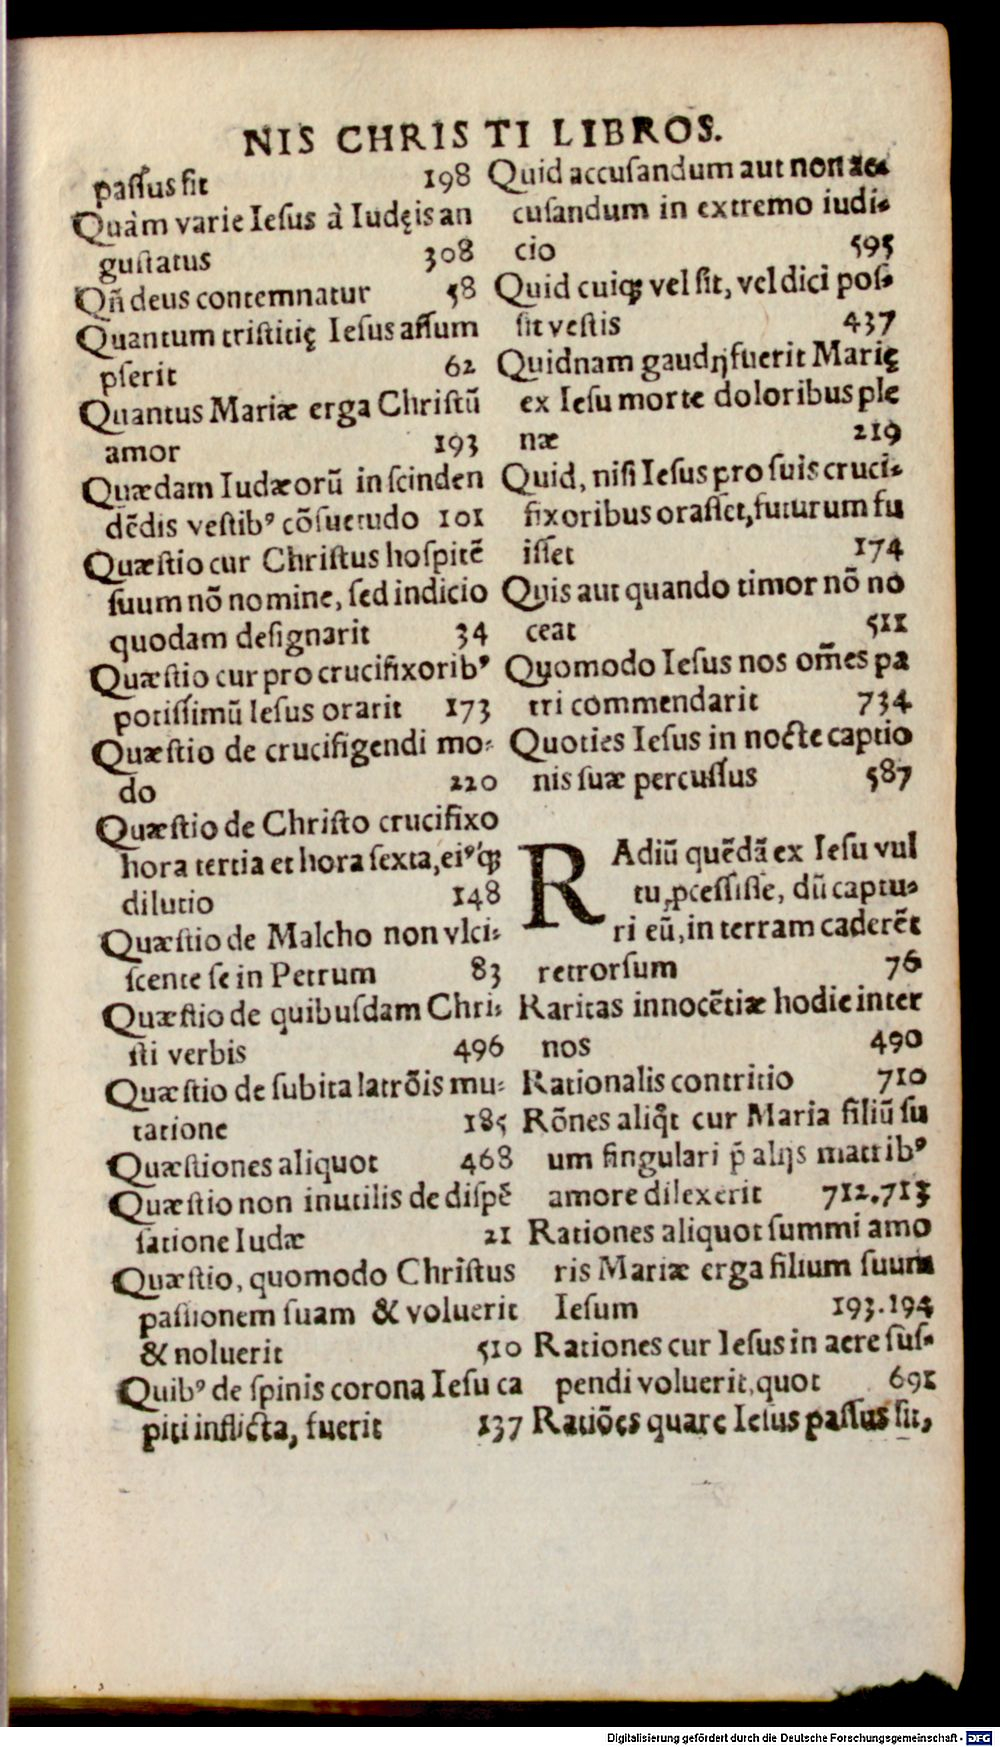 NIS CHRISTI LIBROS.
paſſus ſit 198
Quàm varie Ieſus à Iudęis an
guſtatus 308
Qñ deus contemnatur 58
Quantum triſtitię Ieſus aſſum
pſerit 62
Quantus Mariæ erga Chriſtũ
amor 193
Quædam Iudæorũ in ſcinden
dẽdis veſtib⁹ cõſuetudo 101
Quæſtio cur Chriſtus hoſpitẽ
ſuum nõ nomine, ſed indicio
quodam deſignarit 34
Quæſtio cur pro crucifixorib⁹
potiſſimũ Ieſus orarit 173
Quæſtio de crucifigendi mo-
do 220
Quæſtio de Chriſto crucifixo
hora tertia et hora ſexta, ei⁹ꝗ́;
dilutio 148
Quæſtio de Malcho non vlci-
ſcente ſe in Petrum 83
Quæſtio de quibuſdam Chri-
ſti verbis 496
Quæſtio de ſubita latrõis mu-
tatione 185
Quæſtiones aliquot 468
Quæſtio non inutilis de diſpẽ
ſatione Iudæ 21
Quæſtio, quomodo Chriſtus
paſſionem ſuam & voluerit
& noluerit 510
Quib⁹ de ſpinis corona Ieſu ca
piti inflicta, fuerit 137
Quid accuſandum aut non ac-
cuſandum in extremo iudi-
cio 595
Quid cuiqꝫ vel ſit, vel dici poſ-
ſit veſtis 437
Quidnam gaudij fuerit Marię
ex Ieſu morte doloribus ple
næ 219
Quid, niſi Ieſus pro ſuis cruci-
fixoribus oraſſet, futurum fu
iſſet 174
Quis aut quando timor nõ no
ceat 511
Quomodo Ieſus nos om̃es pa
tri commendarit 734
Quoties Ieſus in nocte captio
nis ſuæ percuſſus 587
RAdiũ quẽdã ex Ieſu vul
tu ꝓceſſiſſe, dũ captu-
ri eũ, in terram caderẽt
retrorſum 76
Raritas innocẽtiæ hodie inter
nos 490
Rationalis contritio 710
Rõnes aliq̃t cur Maria filiũ ſu
um ſingulari p̃ alijs matrib⁹
amore dilexerit 712.713
Rationes aliquot ſummi amo
ris Mariæ erga filium ſuum
Ieſum 193.194
Rationes cur Ieſus in aere ſuſ-
pendi voluerit, quot 691
Ratiões quare Ieſus paſſus ſit,
Digitalisierung gefördert durch die Deutsche Forschungsgemeinschaft - DFG